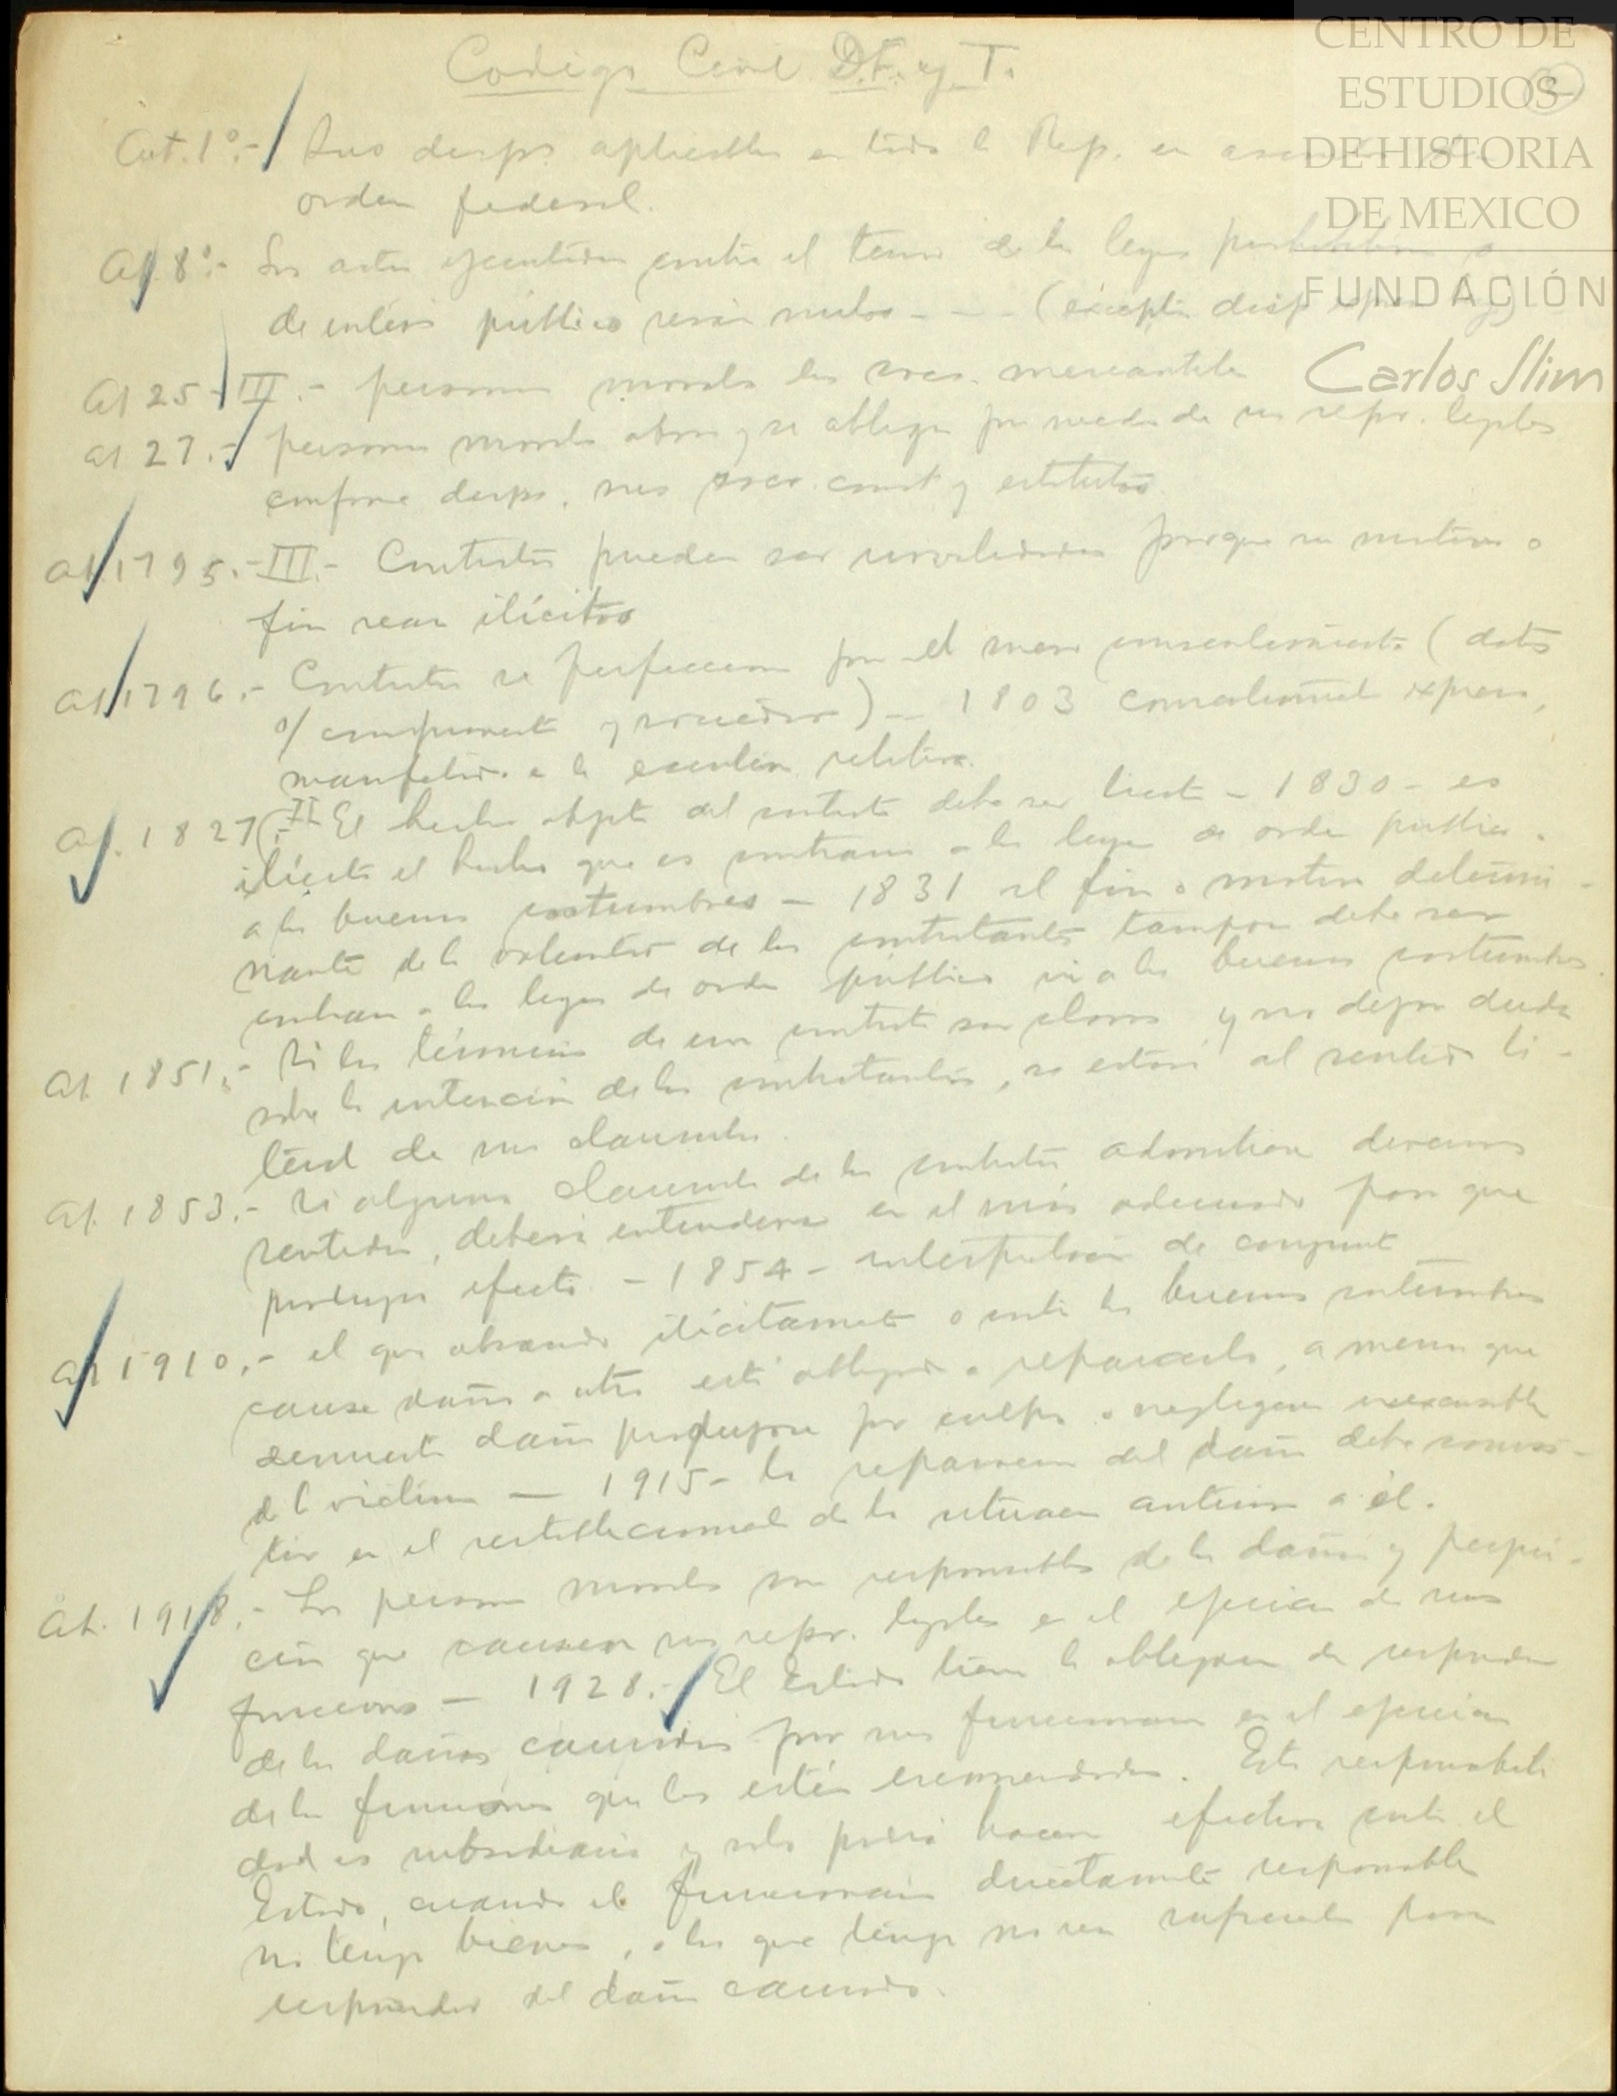 CENTRO DE
ESTUDIOS
DE HISTORIA
DE MEXICO
FUNDACIÓN
Carlos Slim
Codigo Civil D.F. y T.
Art. 1º.- Sus disps. aplicables en toda la Rep. en asuntos
orden federal.
Art 8º.- Los actos ejecutados contra el tenor de las leyes prohibitivas o
de interés público serán nulos - - - (excepto disp
Art 25 - III.- personas morales las socs. mercantiles
Art 27.- personas morales obran y se obligan por medio de sus repr. legales
conforme disps. sus escr. const y estatutos
Art 1795.- III.- Contratos pueden ser invalidados porque su motivo o
fin sean ilícitos
Art 1796.- Contratos se perfeccionan por el mero consentimiento (
) - 1803 consentimient expreso,
a la escritura relativa.
Art. 1827.- II El hecho objeto del contrato debe ser lícito - 1830 - es
ilícito el hecho que es contrario a las leyes de orden público o
a las buenas costumbres - 1831 el fin o motivo determi-
nante de la voluntad de los contratantes tampoco debe ser
contrario a las leyes de orden público ni a las buenas costumbres.
Art. 1851.- Si los términos de un contrato son claros y no dejan duda
sobre la intención de los contratantes, se estará al sentido li-
teral de sus clausulas.
Art. 1853.- Si alguna clausula de los contratos admitiere diversos
sentidos, deberá entenderse en el más adecuado para que
produzca efecto. - 1854 - interpretación de conjunt
Art 1910.- el que obrando ilícitamente o contra las buenas costumbres
cause daño a otro está obligado a repararlo, a menos que
demuestre daño produjose por culpa o negligencia inexcusable
de l victima - 1915 - la reparación del daño debe consis-
tir en el restablecimient de la situación anterior a él.
Art. 1918.- Las personas morales son responsables de los daños y perjui-
cios que causen sus repr. legales en el ejercicio de sus
funciones - 1928.- El Estado tiene la obligación de responder
de los daños causados por sus funcionarios en el ejercicio
de las funciones que les estén encomendadas. Esta responsabili
dad es subsidiaria y solo podrá hacerse efectiva contra el
Estado, cuando el funcionario directamente responsable
no tenga bienes, o los que tenga no sean suficientes para
responder del daño causado.